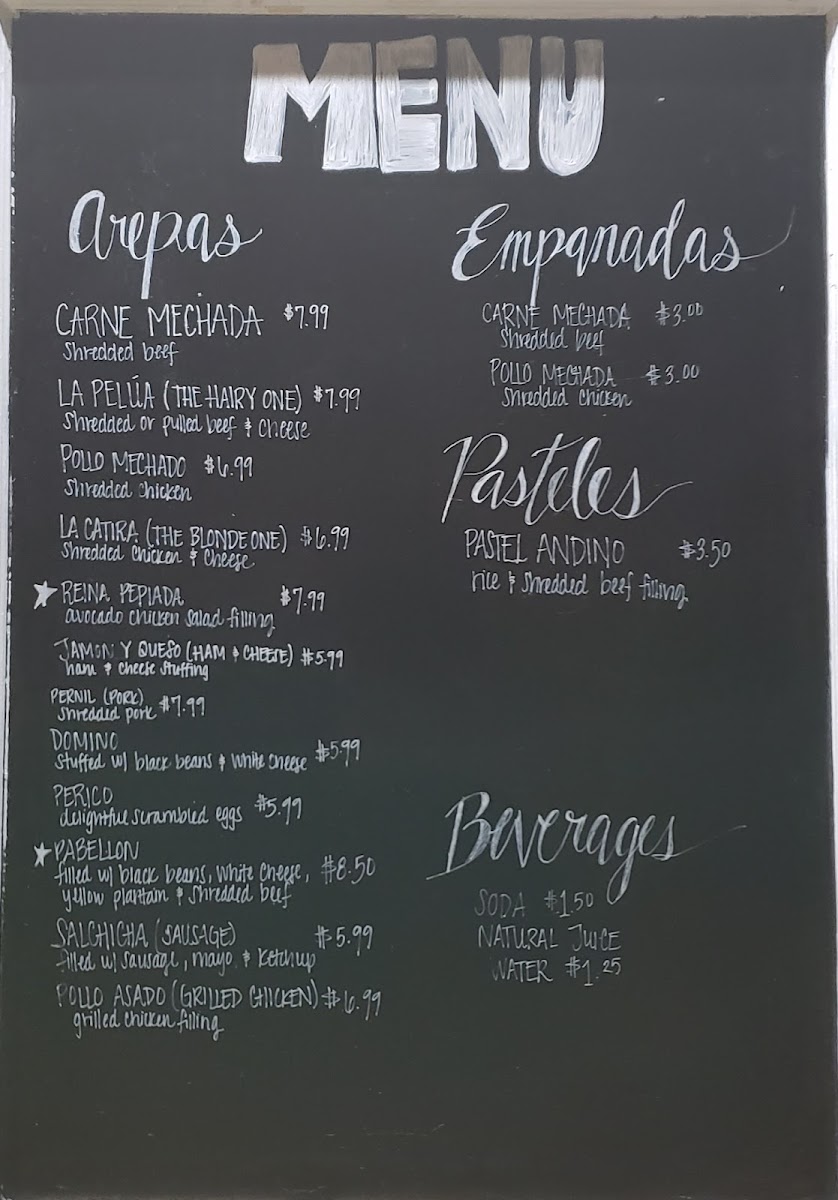 MENU
Arepas
CARNE MECHADA $7.99
Shredded beef
LA PELÚA (THE HAIRY ONE) $7.99
Shredded or pulled beef & cheese
POLLO MECHADO $6.99
Shredded chicken
LA CATIRA (THE BLONDE ONE) $6.99
Shredded chicken & cheese
REINA PEPIADA $7.99
avocado chicken salad filling
JAMON Y QUESO (HAM & CHEESE) $5.99
ham & cheese stuffing
PERNIL (PORK)
shredded pork $7.99
DOMINO
stuffed w/ black beans & white cheese $5.99
PERICO
delightful scrambled eggs $5.99
PABELLON
filled w/ black beans, white cheese, $8.50
yellow plantain & shredded beef
SALCHICHA (SAUSAGE) $5.99
filled w/ sausage, mayo & ketchup
POLLO ASADO (GRILLED CHICKEN) $6.99
grilled chicken filling
Empanadas
CARNE MECHADA $3.00
Shredded beef
POLLO MECHADA $3.00
Shredded chicken
Pasteles
PASTEL ANDINO $3.50
rice & shredded beef filling
Beverages
SODA $1.50
NATURAL JUICE
WATER $1.25